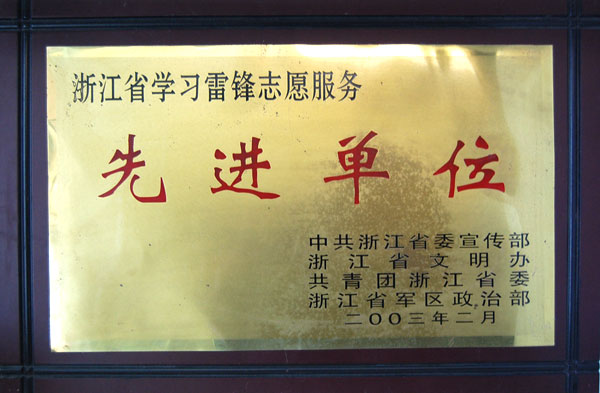 浙江省学习雷锋志愿服务
先进单位
中共浙江省委宣传部
浙江省文明办
共青团浙江省委
浙江省军区政治部
二〇〇三年二月